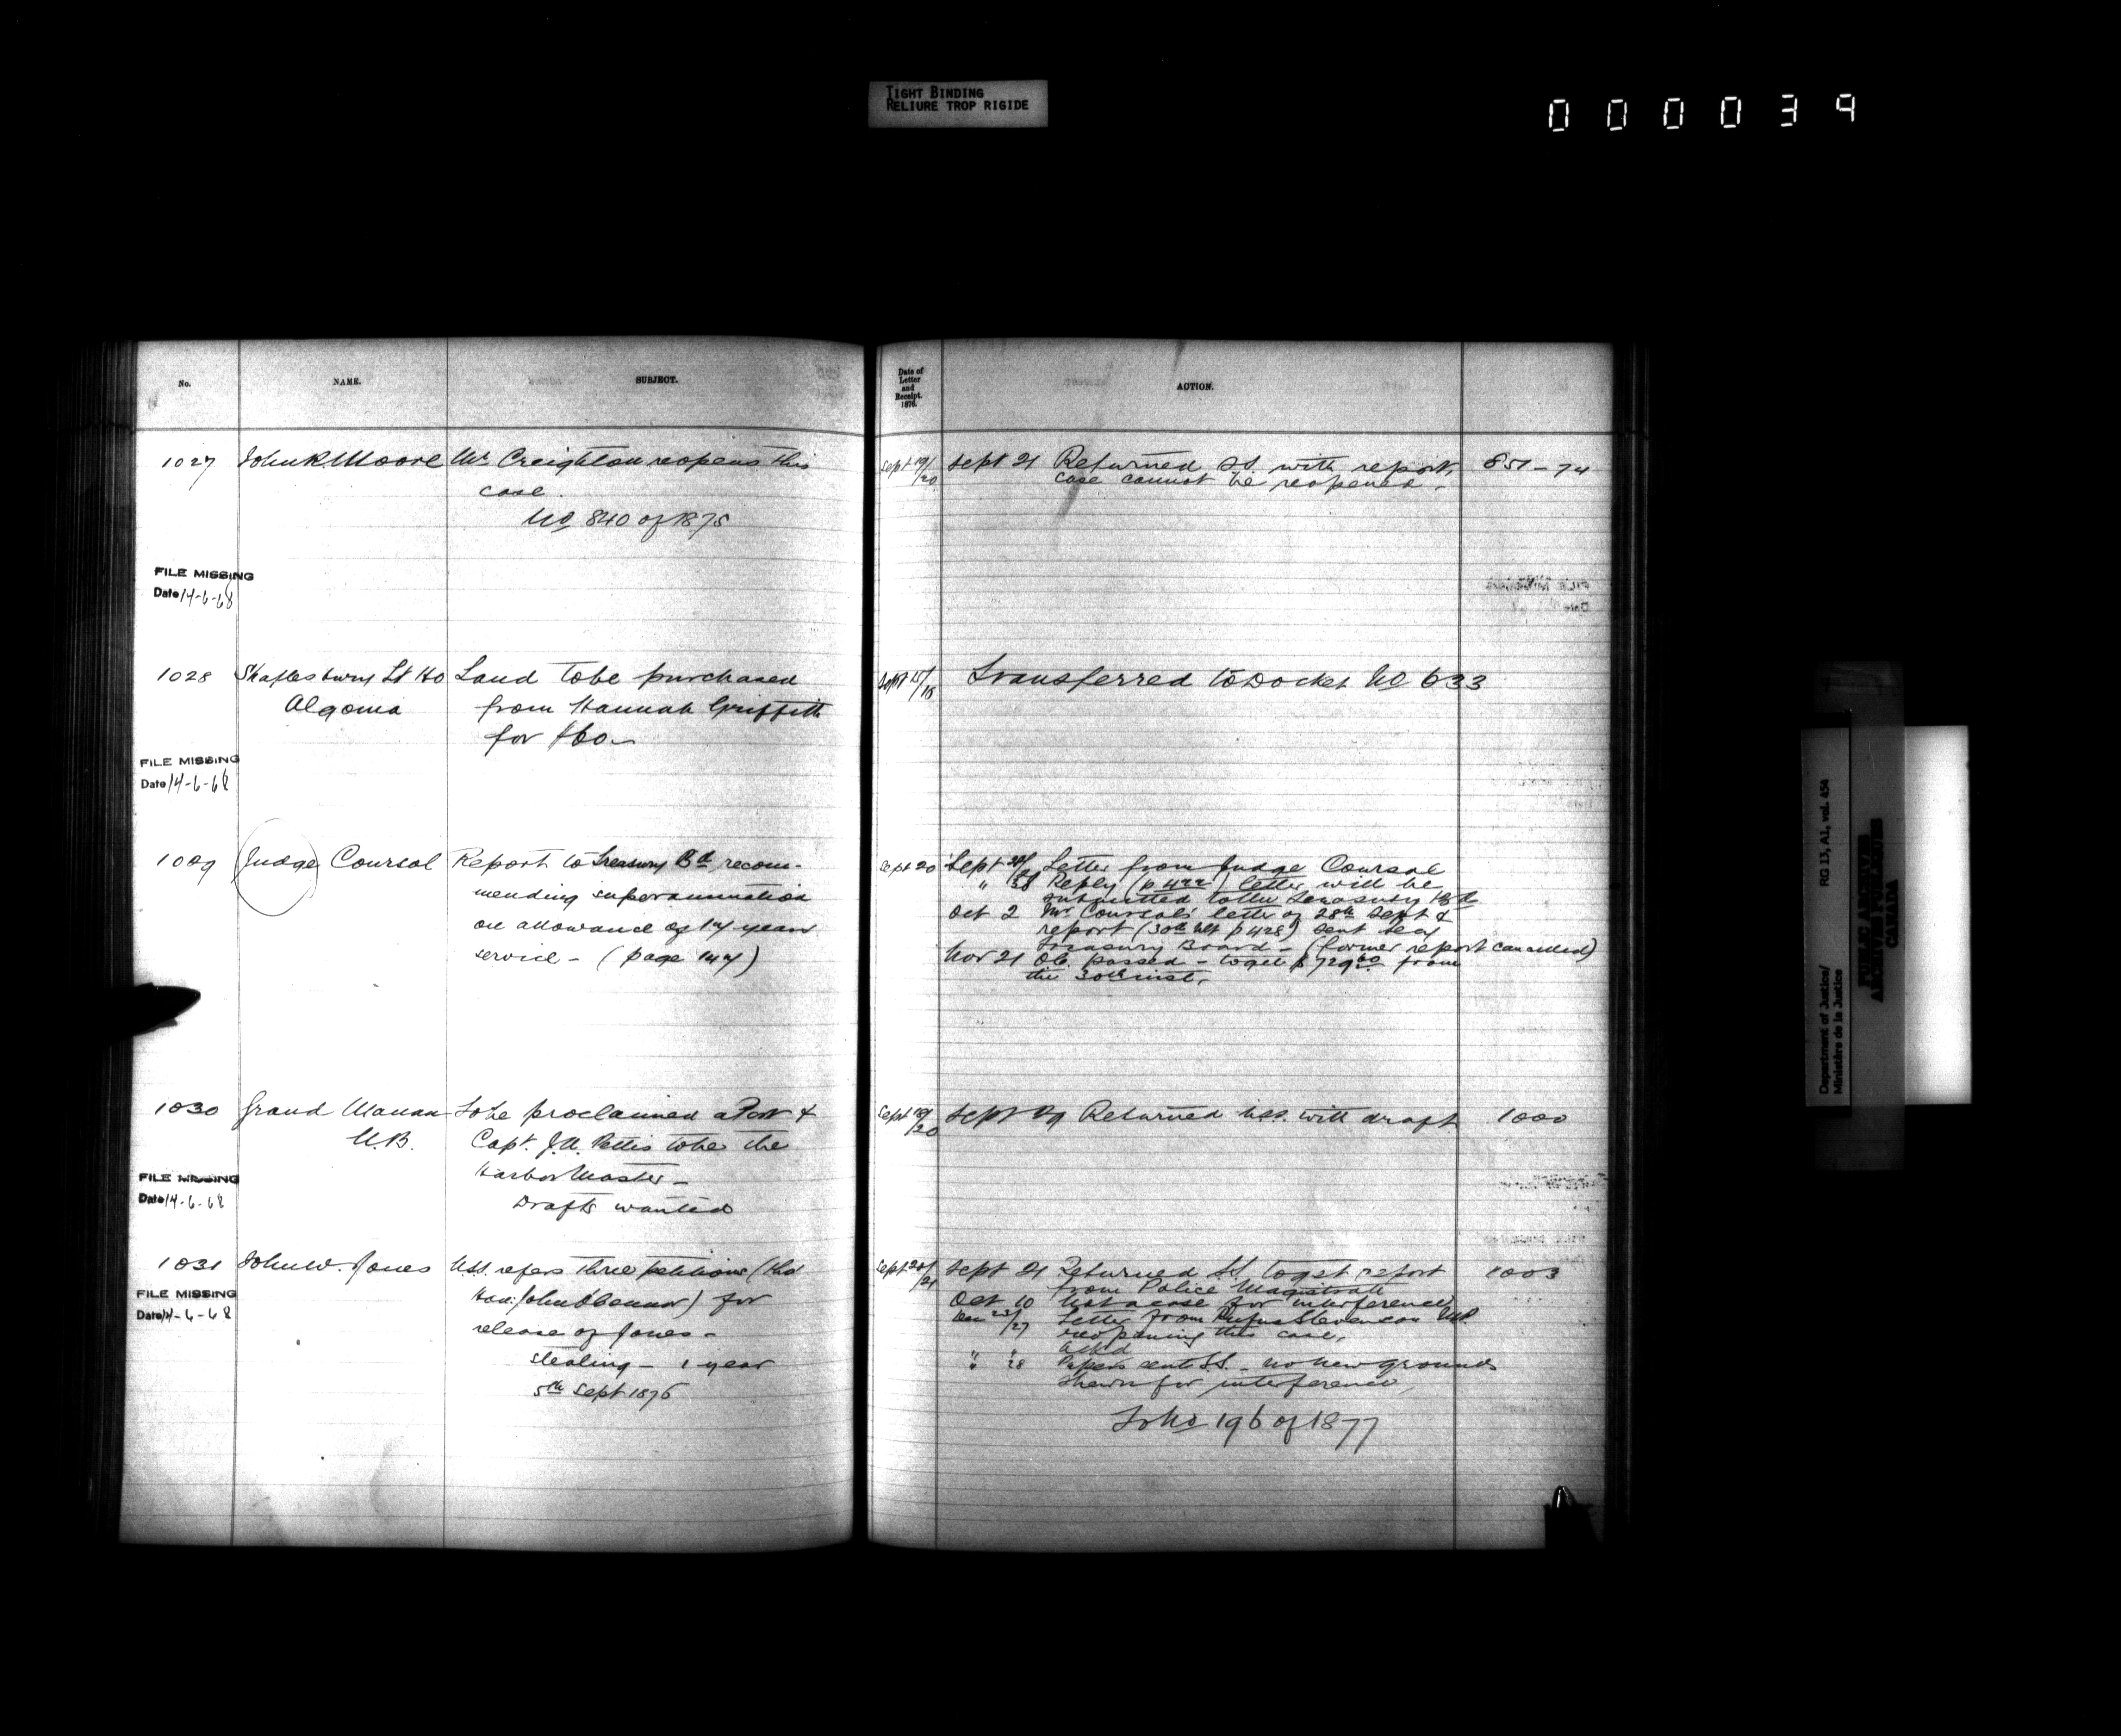 TIGHT BINDING
RELIURE TROP RIGIDE
000039
No. NAME. SUBJECT.
1027 John R. Moore Mr. Creighton reopens this
case.
No 840 of 1875
FILE MISSING
Date 14-6-68
1028 Shaftesbury Lt Ho Land to be purchased
Algoma from Hannah Griffith
for $60
FILE MISSING
Date 14-6-68
1029 Judge Coursol Report to Treasury Bd recom-
mending superannuation
on allowance of 14 years
service - (page 144)
1030 Grand Manan To be proclaimed a Port &
N.B. Capt. J.N. Pettis to be the
Harbor Master -
Drafts wanted
FILE MISSING
Date 14-6-68
1031 John W. Jones U.S.S. refers three petitions (thro'
Hon: John O'Connor) for
release of Jones -
stealing - 1 year
5th Sept 1876
FILE MISSING
Date 14-6-68
Date of
Letter
and
Receipt.
1876.
ACTION.
Sept 19/20 Sept 21 Returned S.S. with report, 851-74
case cannot be reopened -
Sept 15/18 Transferred to Docket No 633
Sept 20 Sept Letter from Judge Coursol
" Reply (p 422) letter will be
submitted to the Treasury Bd
Oct 2 Mr Coursol's letter of 28th Sept &
report (30th ult p 428) sent Secy
Treasury Board - (former report cancelled)
Nov 21 O.C. passed - to get $729 60 from
the 30th inst.
Sept 19/20 Sept 29 Returned U.S.S. with draft 1000
Sept 20/21 Sept 21 Returned S.S. to get report 1003
from Police Magistrate
Oct 10 Not a case for interference
Dec 23/27 Letter from Rufus Stevenson M.P.
reopening this case,
" " Ackd
" 28 Papers sent S.S. - no new grounds
shewn for interference,
To No 196 of 1877
Department of Justice/
Ministère de la Justice
RG 13, A1, vol. 454
PUBLIC ARCHIVES
ARCHIVES PUBLIQUES
CANADA